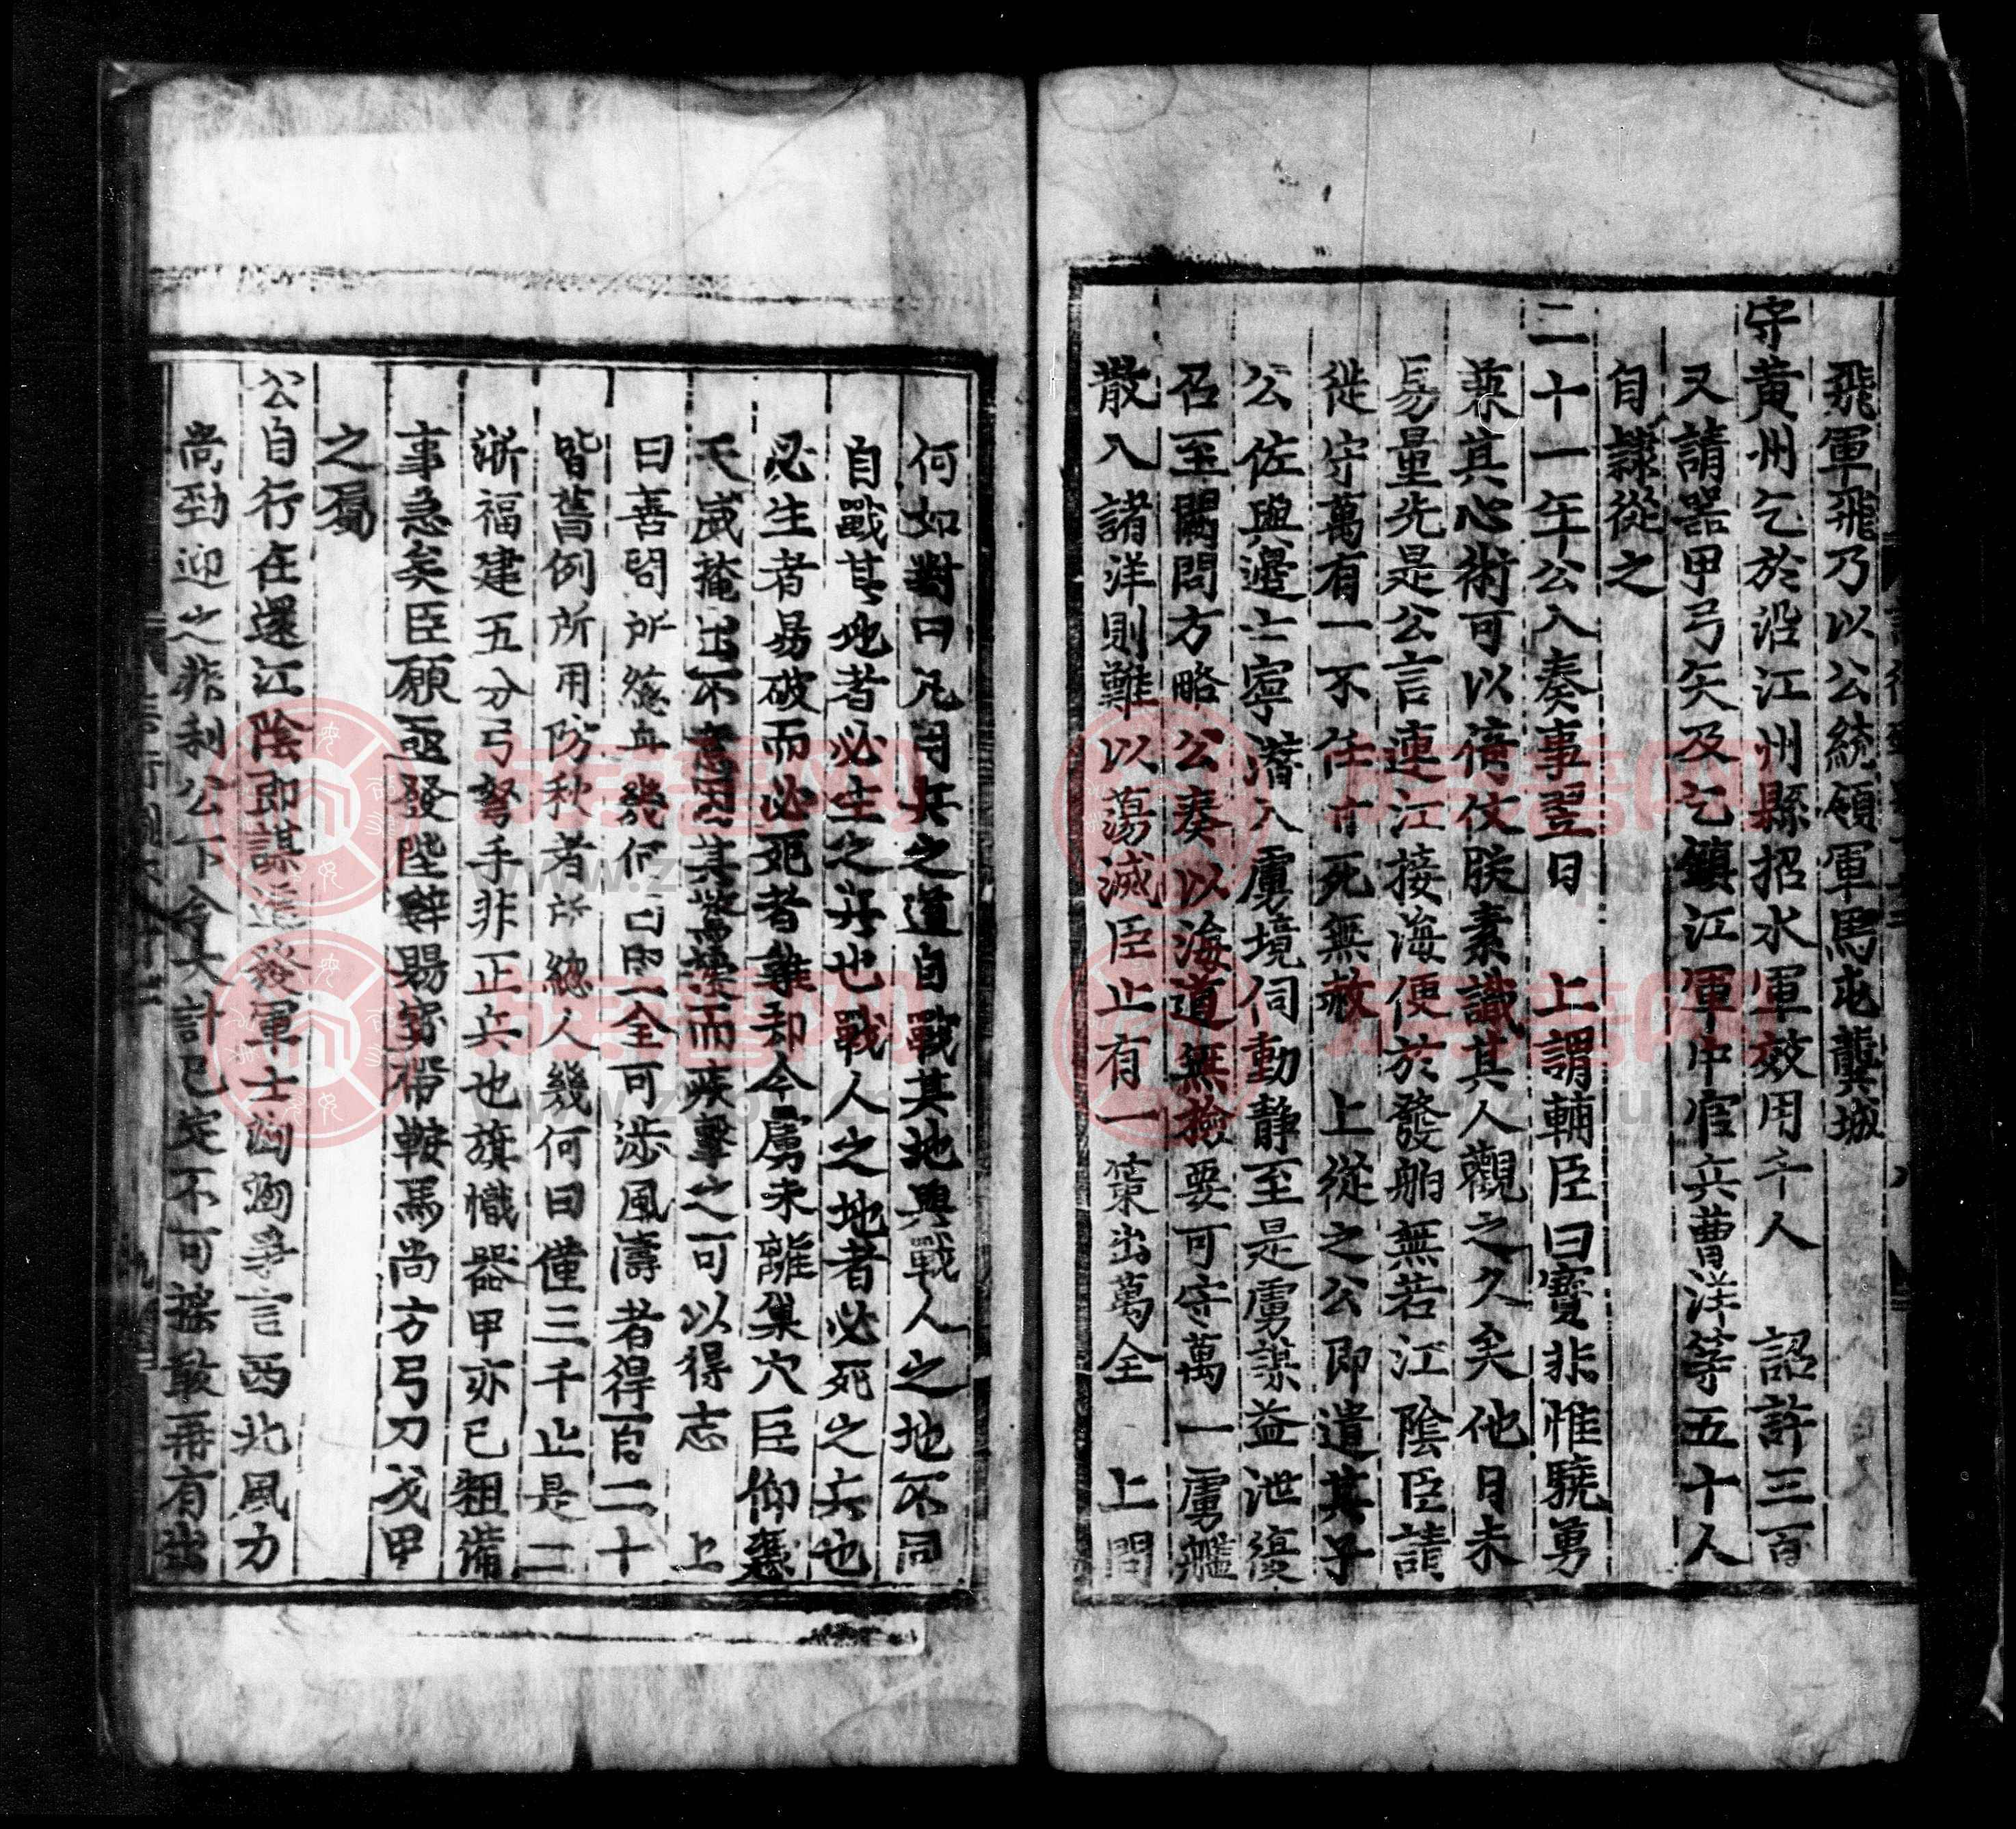 飛軍飛乃以公統領軍馬屯龔城
守黃州乞於沿江州縣招水軍效用千人 詔許三百
又請器甲弓矢及乞鎮江軍中官兵曹洋等五十人
自隸從之
二十一年公入奏事翌日 上謂輔臣曰寶非惟驍勇
兼其心術可以倚仗朕素識其人觀之久矣他日未
易量先是公言連江接海便於發舶無若江陰臣請
徙守萬有一不任甘死無赦 上從之公即遣其子
公佐與邊士寧潛入虜境伺動靜至是虜謀益泄復
召至闕問方略公奏以海道無險要可守萬一虜艦
散入諸洋則難以蕩滅臣止有一策出萬全 上問
何如對曰凡用兵之道自戰其地與戰人之地不同
自戰其地者必生之兵也戰人之地者必死之兵也
必生者易破而必死者難却今虜未離巢穴臣仰憑
天威掩出不意因其驚擾而疾擊之可以得志 上
曰善問所總舟幾何曰堅全可涉風濤者得百二十
皆舊例所用防秋者所總人幾何曰僅三千止是二
浙福建五分弓弩手非正兵也旗幟器甲亦已粗備
事急矣臣願亟發陛辭賜寶帶鞍馬尚方弓刀戈甲
之屬
公自行在還江陰即謀進發軍士洶洶爭言西北風力
尚勁迎之非利公下令大計已定不可搖敢再有出